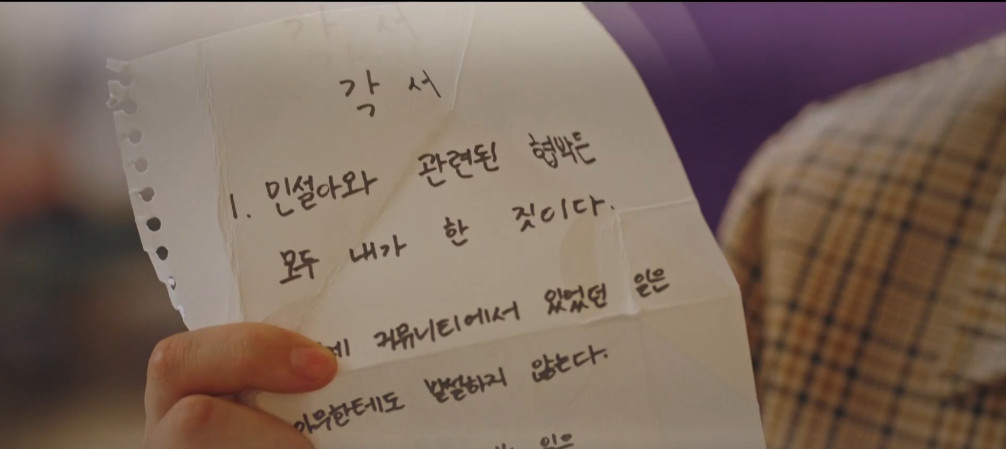 각서
1. 민설아와 관련된 협박은
모두 내가 한 짓이다.
커뮤니티에서 있었던 일은
아무한테도 발설하지 않는다.